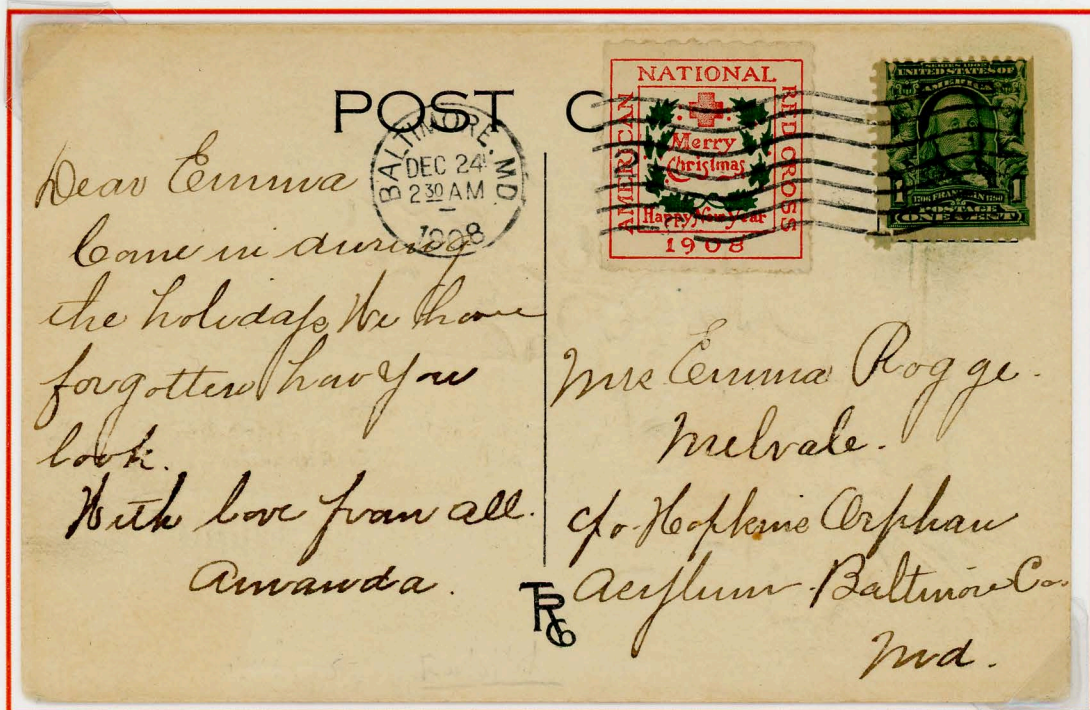 POST C
BALTIMORE, MD.
DEC 24
2 30 AM
1908
AMERICAN NATIONAL RED CROSS
Merry
Christmas
Happy New Year
1908
SERIES 1902
UNITED STATES OF
AMERICA
1706 FRANKLIN 1790
1 POSTAGE 1
ONE CENT
Dear Emma
Come in during
the holidays We have
forgotten how you
look.
With love from all.
Amanda.
TRCo
Mrs Emma Rogge.
Melvale.
c/o Hopkins Orphan
Asylum Baltimore Co.
Md.